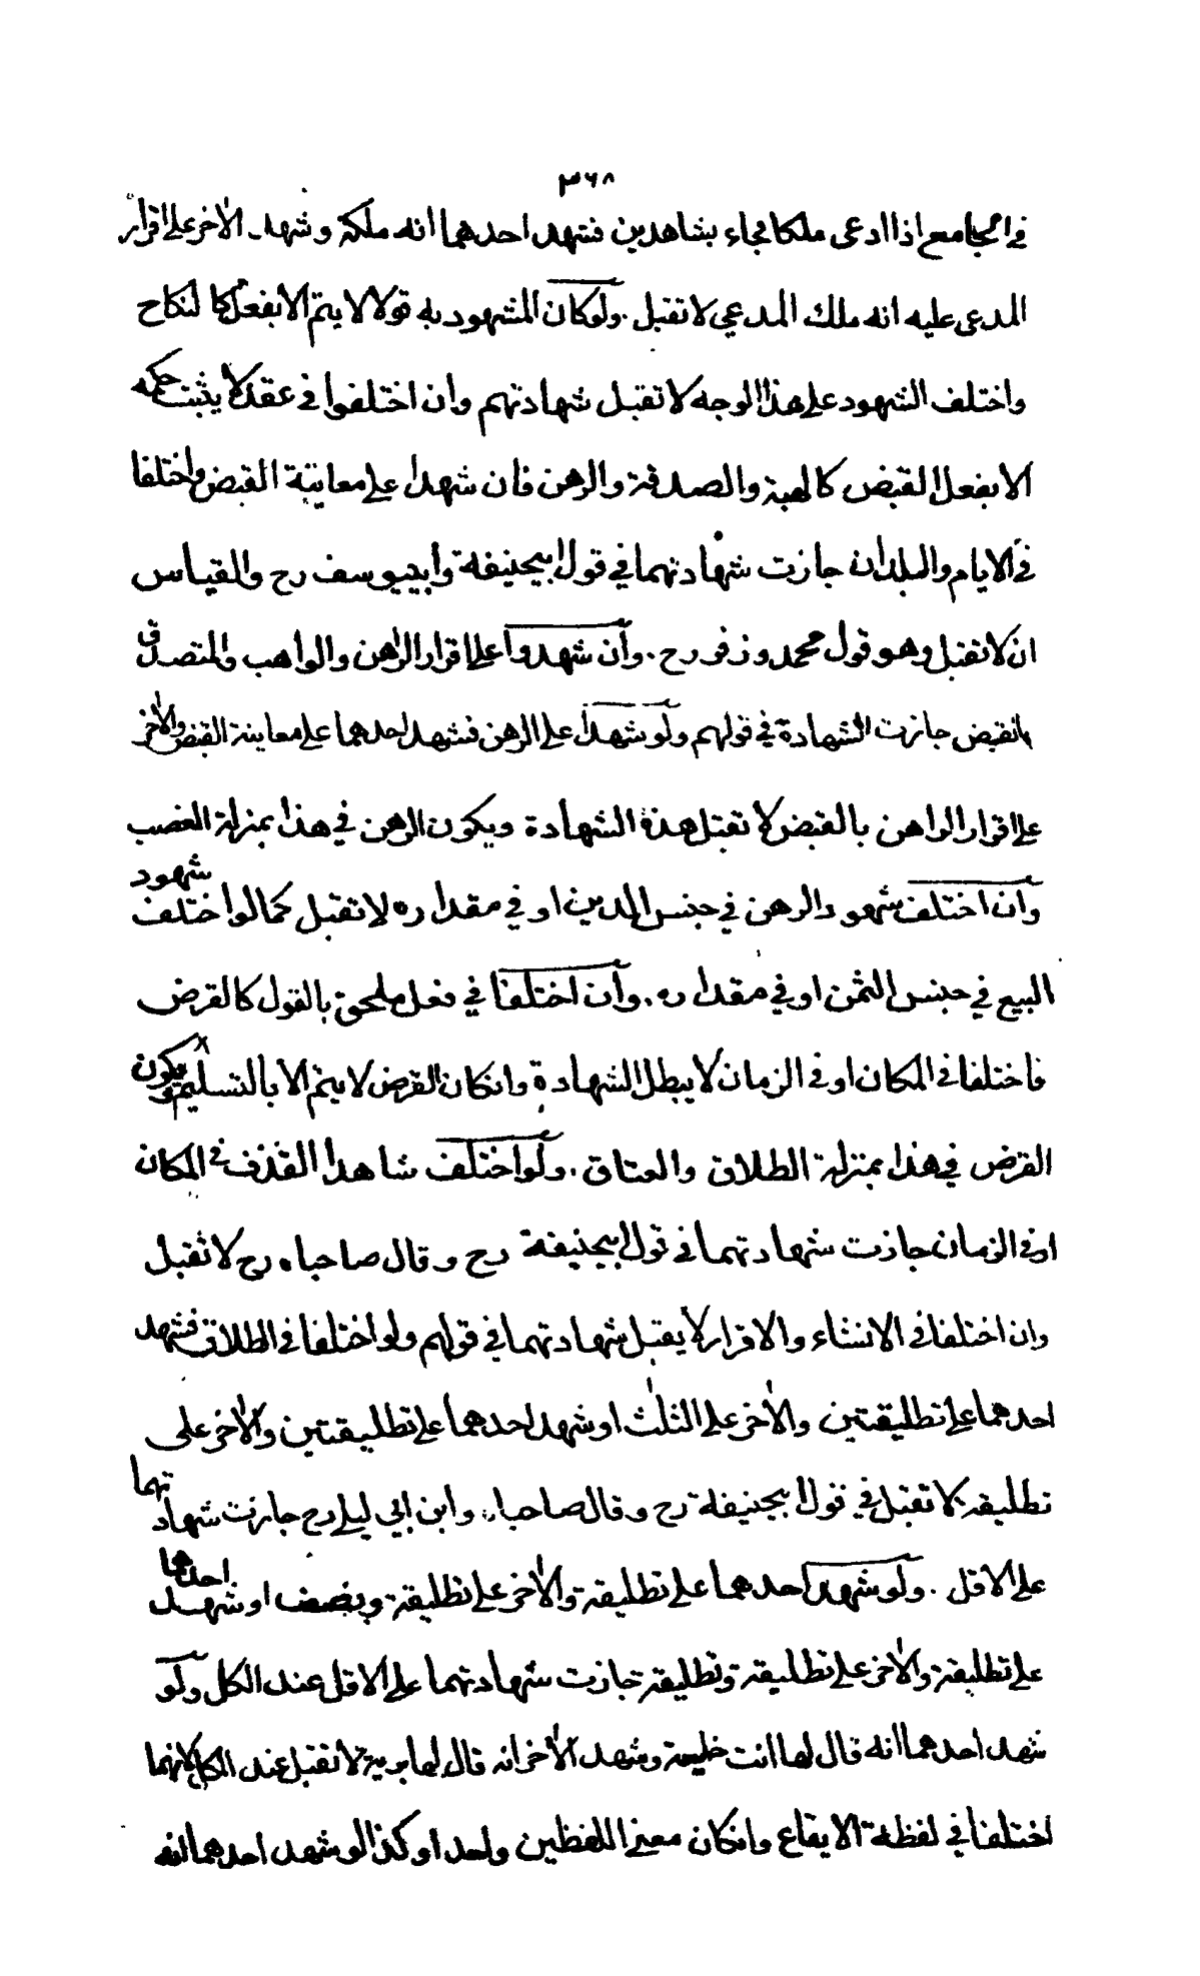 ٣٦٨
في الجامع اذا ادعى ملكا فجاء بشاهدين فشهد احدهما انه ملكه وشهد الاخر على اقرار
المدعى عليه انه ملك المدعي لا تقبل . ولوكان المشهود به قولا لا يتم الا بفعل كالنكاح
واختلف الشهود على هذا الوجه لا تقبل شهادتهم وان اختلفوا في عقد لا يثبت حكمه
الا بفعل القبض كالهبة والصدقة والرهن فان شهدا على معاينة القبض واختلفا
في الايام والبلدان جازت شهادتهما في قول ابيحنيفة وابييوسف رح والقياس
ان لا تقبل وهو قول محمد وزفر رح . وان شهدوا على اقرار الراهن والواهب والمتصدق
بالقبض جازت الشهادة في قولهم ولو شهدا على الرهن فشهد احدهما على معاينة القبض والاخر
على اقرار الراهن بالقبض لا تقبل هذه الشهادة ويكون الرهن في هذا بمنزلة الغصب
وان اختلف شهود الرهن في جنس الدين او في مقداره لا تقبل كما لو اختلف شهود
البيع في جنس الثمن او في مقداره . وان اختلفا في فعل ملحق بالقول كالقرض
فاختلفا في المكان او في الزمان لا يبطل الشهادة وانكان القرض لا يتم الا بالتسليم ويكون
القرض في هذا بمنزلة الطلاق والعتاق . ولو اختلف شاهدا القذف في المكان
او في الزمان جازت شهادتهما في قول ابيحنيفة رح وقال صاحباه رح لا تقبل
وان اختلفا في الانشاء والاقرار لا يقبل شهادتهما في قولهم ولو اختلفا في الطلاق فشهد
احدهما على تطليقتين والاخر على الثلث او شهد احدهما على تطليقتين والاخر على
تطليقة لا تقبل في قول ابيحنيفة رح وقال صاحباه وابن ابي ليلى رح جازت شهادتهما
على الاقل . ولو شهد احدهما على تطليقة والاخر على تطليقة ونصف او شهد احدهما
على تطليقة والاخر على تطليقة وتطليقة جازت شهادتهما على الاقل عند الكل ولو
شهد احدهما انه قال لها انت خلية وشهد الاخر انه قال لها برية لا تقبل عند الكل لانهما
اختلفا في لفظة الايقاع وانكان معنى اللفظين واحدا وكذا لو شهد احدهما انه